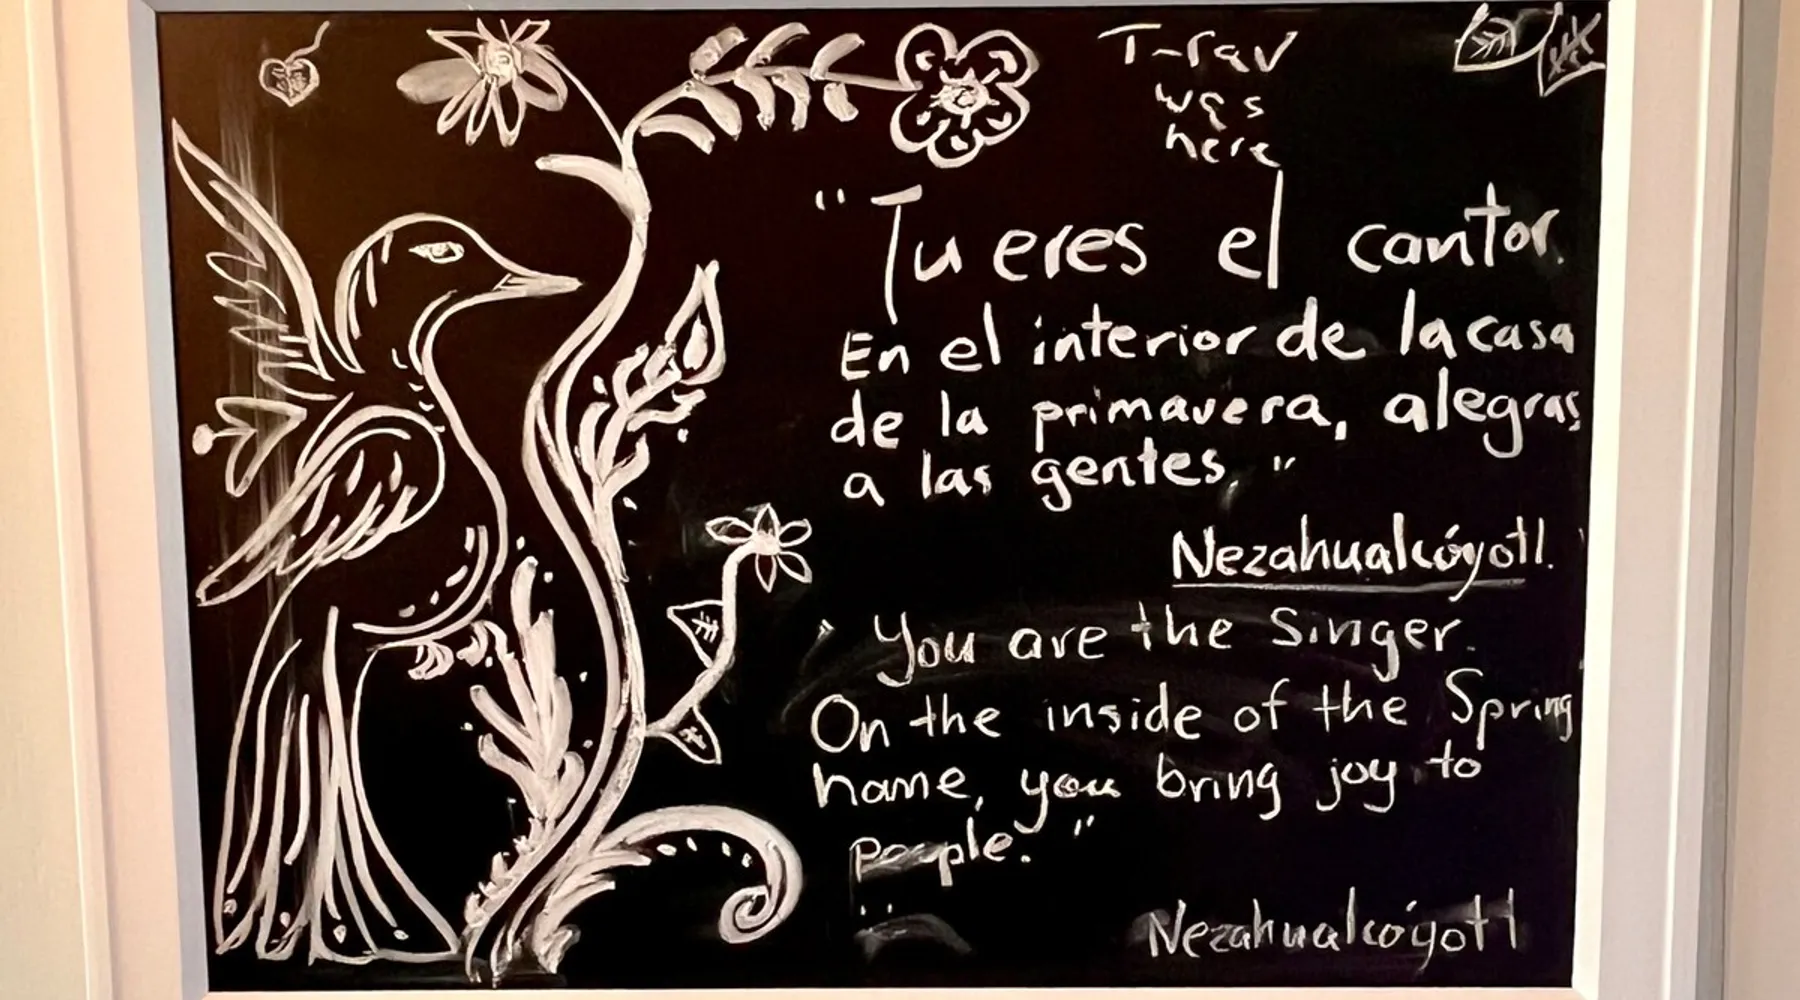 T-rav
was
here
"Tu eres el cantor.
En el interior de la casa
de la primavera, alegras
a las gentes."
Nezahualcóyotl.
"You are the Singer.
On the inside of the Spring
home, you bring joy to
people."
Nezahualcóyotl